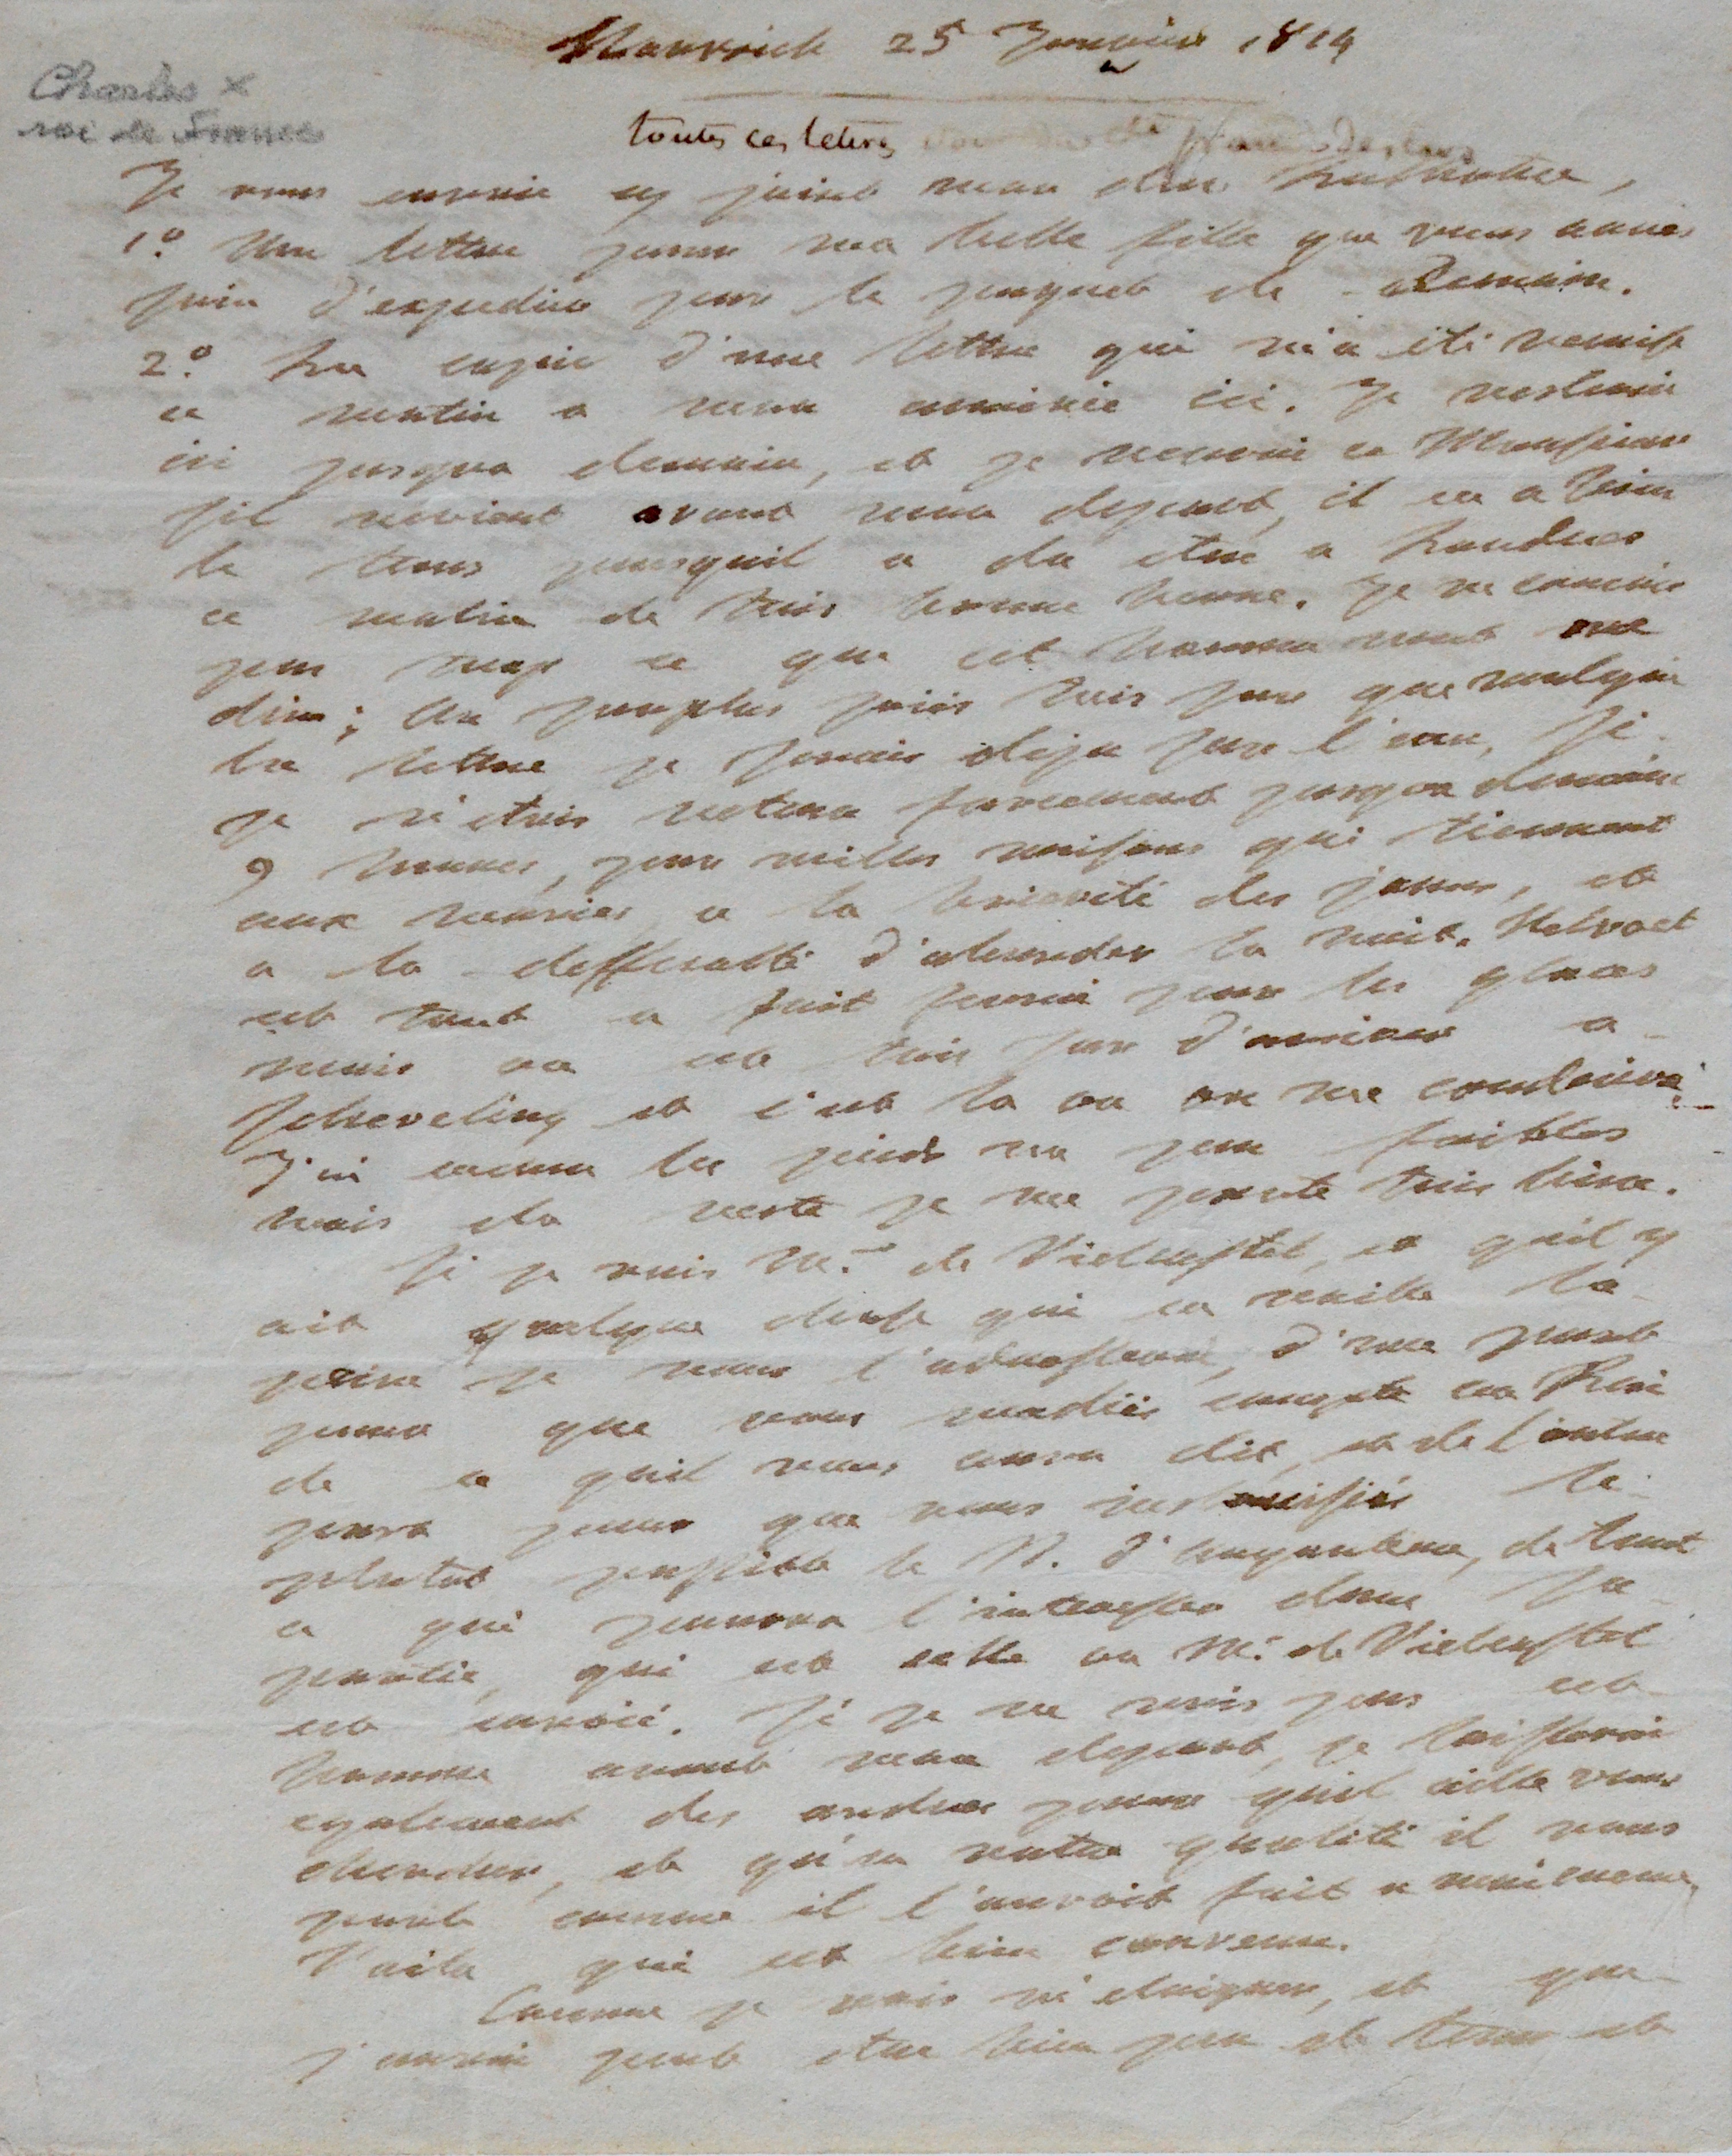 Harwich 25 Janvier 1814
Charles X
roi de France
toutes ces lettres
Je vous envoie cy joint mon cher
1º. Une lettre pour ma belle fille que vous aures
soin d'expedier par le paquet de demain.
2º. La copie d'une lettre qui m'a été remise
ce matin a mon arrivée ici. Je resterai
ici jusqua demain, et je recevrai ce Monsieur
s'il revient avant mon depart, il en a bien
le tems puisquil a du etre a Londres
ce matin de très bonne heure. Je ne concois
pas trop ce que cet homme veut me
dire; Au surplus soiés très sur que malgré
la lettre je serais deja sur l'eau, si
je n'etois retenu forcement jusqua demain
9 heures, par milles raisons qui tiennent
aux marées, a la brieveté des jours, et
a la difficulté d'aborder la nuit. Helvoet
est tout a fait fermé par les glaces
mais on est très sur d'arriver a
Scheveling et c'est la ou on me conduira.
J'ai encore les pieds un peu faibles
mais du reste je me porte très bien.
Si je vois Mr. de Vielcastel, et quil y
ait quelque chose qui en vaille la
peine je vous l'adresserai, d'une part
pour que vous rendiés compte au Roi
de ce quil vous aura dit, et de l'autre
part pour que vous instruisiés le
plutot possible le D. d'angouleme, de tout
ce qui pourra l'interesser dans sa
partie, qui est celle ou Mr. de Vielcastel
est envoié. Si je ne vois pas cet
homme avant mon depart, je laisserai
egalement des ordres pour quil aille vous
chercher, et qu'en votre qualité il vous
parle comme il l'auroit fait a moi meme.
Voila qui est bien convenu.
Comme je vais m'eloigner, et que
j'aurai peut etre bien peu de tems et